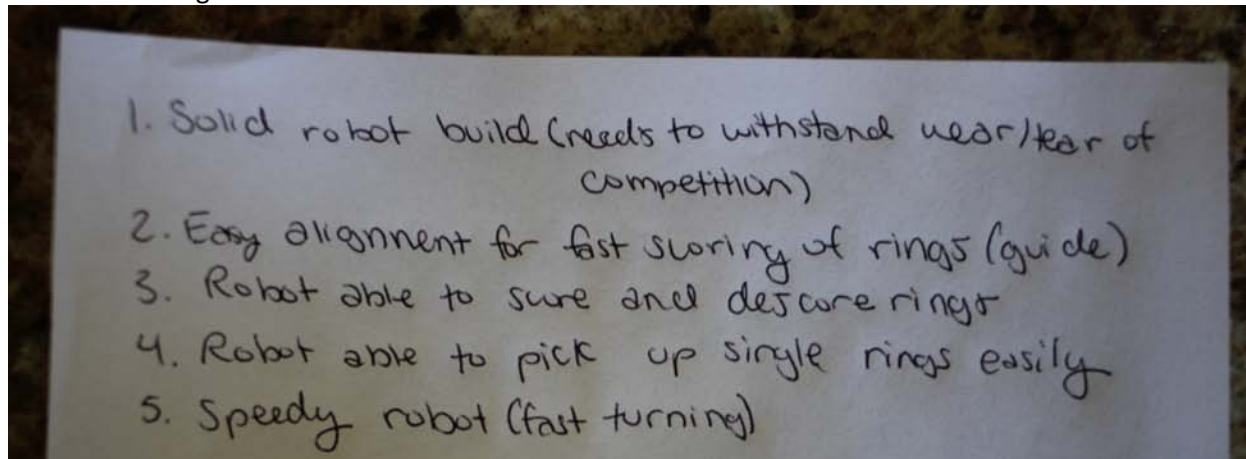 1. Solid robot build (needs to withstand wear/tear of
competition)
2. Easy alignment for fast scoring of rings (guide)
3. Robot able to score and descore rings
4. Robot able to pick up single rings easily
5. Speedy robot (fast turning)